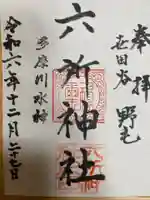 奉拝
世田谷 野毛
六所神社
多摩川水神
令和六年十二月二十七日